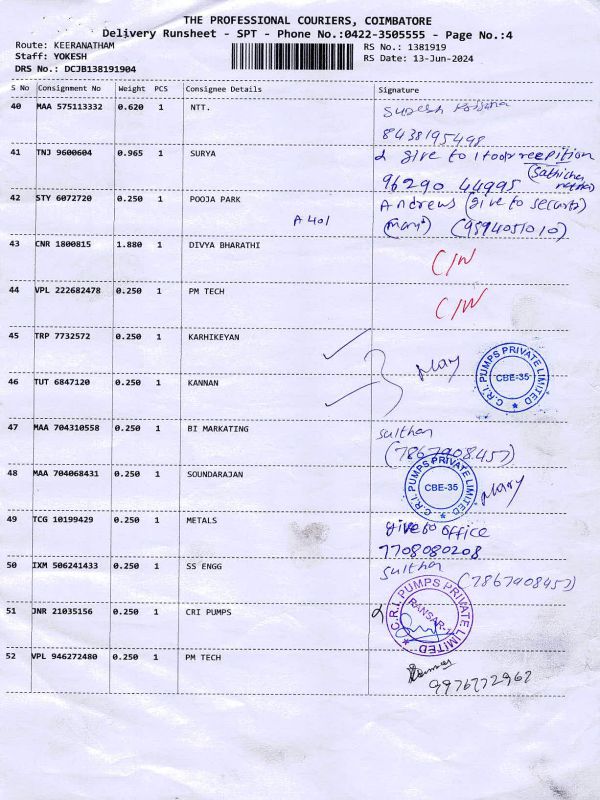 THE PROFESSIONAL COURIERS, COIMBATORE
Delivery Runsheet - SPT - Phone No.:0422-3505555 - Page No.:4
Route: KEERANATHAM
RS No.: 1381919
Staff: YOKESH
RS Date: 13-Jun-2024
DRS No.: DCJB138191904
S No Consignment No Weight PCS Consignee Details Signature
40 MAA 575113332 0.620 1 NTT.
8438195498
41 TNJ 9600604 0.965 1 SURYA
give to
96290 44995
42 STY 6072720 0.250 1 POOJA PARK
A 401
Andrews (give to security)
(9594051010)
43 CNR 1800815 1.880 1 DIVYA BHARATHI
C/N
44 VPL 222682478 0.250 1 PM TECH
C/N
45 TRP 7732572 0.250 1 KARHIKEYAN
Mary
C.R.I. PUMPS PRIVATE LIMITED
CBE-35
46 TUT 6847120 0.250 1 KANNAN
47 MAA 704310558 0.250 1 BI MARKATING
sulthan
(7867908457)
48 MAA 704068431 0.250 1 SOUNDARAJAN
C.R.I. PUMPS PRIVATE LIMITED
CBE-35
Mary
49 TCG 10199429 0.250 1 METALS
give to office
7708080208
50 IXM 506241433 0.250 1 SS ENGG
sulthan (7867908457)
51 JNR 21035156 0.250 1 CRI PUMPS
C.R.I. PUMPS PRIVATE LIMITED
52 VPL 946272480 0.250 1 PM TECH
9976772962